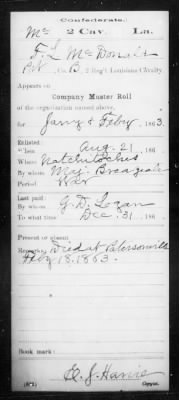 Confederate.
Mc 2 Cav. La.
F. L. McDonald
Pvt, Co. B, 2 Reg't Louisiana Cavalry.
Appears on
Company Muster Roll
of the organization named above,
for Jany & Feby, 1863.
Enlisted:
When Aug. 21, 186
Where Natchitoches
By whom Maj. Breazeale
Period War
Last paid:
By whom G. D. Logan
To what time Dec. 31, 186
Present or absent
Remarks: Died at
Feby 18. 1863.
Book mark:
E. J.
Copyist.